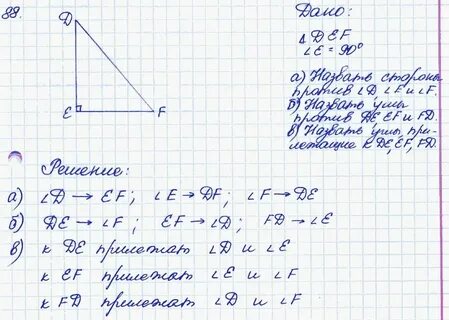 88.
D
E
F
Дано:
△ DEF
∠E = 90°
а) Назвать стороны
против ∠D ∠E и ∠F.
б) Назвать углы
против DE EF и FD.
в) Назвать углы, при-
лежащие к DE, EF, FD.
Решение:
а) ∠D → EF; ∠E → DF; ∠F → DE
б) DE → ∠F; EF → ∠D; FD → ∠E
в) к DE прилежат ∠D и ∠E
к EF прилежат ∠E и ∠F
к FD прилежат ∠D и ∠F